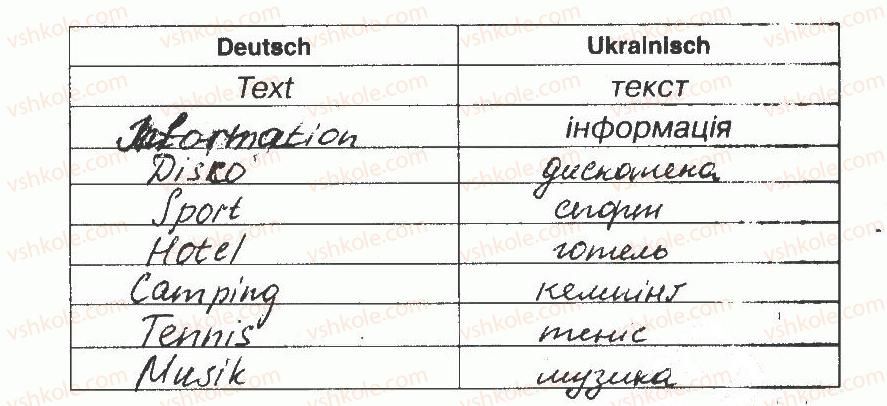 Deutsch Ukrainisch
Text текст
Information інформація
Disko дискотека
Sport спорт
Hotel готель
Camping кемпінг
Tennis теніс
Musik музика
vshkole.com